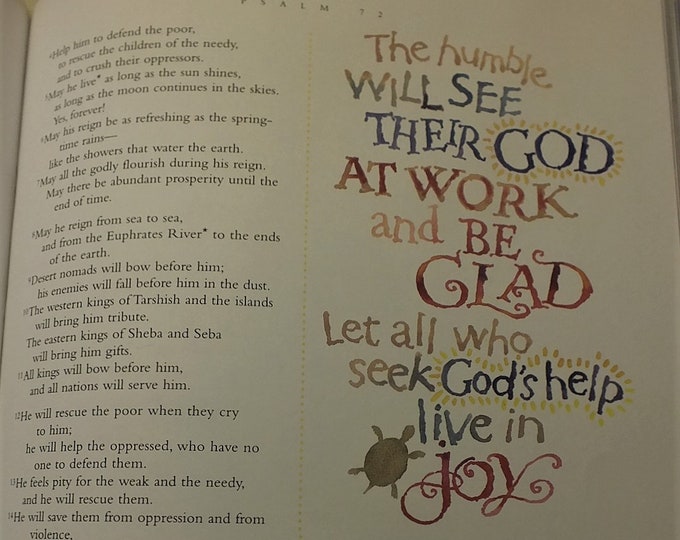 PSALM 72
4Help him to defend the poor,
to rescue the children of the needy,
and to crush their oppressors.
5May he live* as long as the sun shines,
as long as the moon continues in the skies.
Yes, forever!
6May his reign be as refreshing as the spring-
time rains—
like the showers that water the earth.
7May all the godly flourish during his reign.
May there be abundant prosperity until the
end of time.
8May he reign from sea to sea,
and from the Euphrates River* to the ends
of the earth.
9Desert nomads will bow before him;
his enemies will fall before him in the dust.
10The western kings of Tarshish and the islands
will bring him tribute.
The eastern kings of Sheba and Seba
will bring him gifts.
11All kings will bow before him,
and all nations will serve him.
12He will rescue the poor when they cry
to him;
he will help the oppressed, who have no
one to defend them.
13He feels pity for the weak and the needy,
and he will rescue them.
14He will save them from oppression and from
violence,
The humble
WILL SEE
THEIR GOD
AT WORK
and BE
GLAD
Let all who
seek God's help
live in
joy